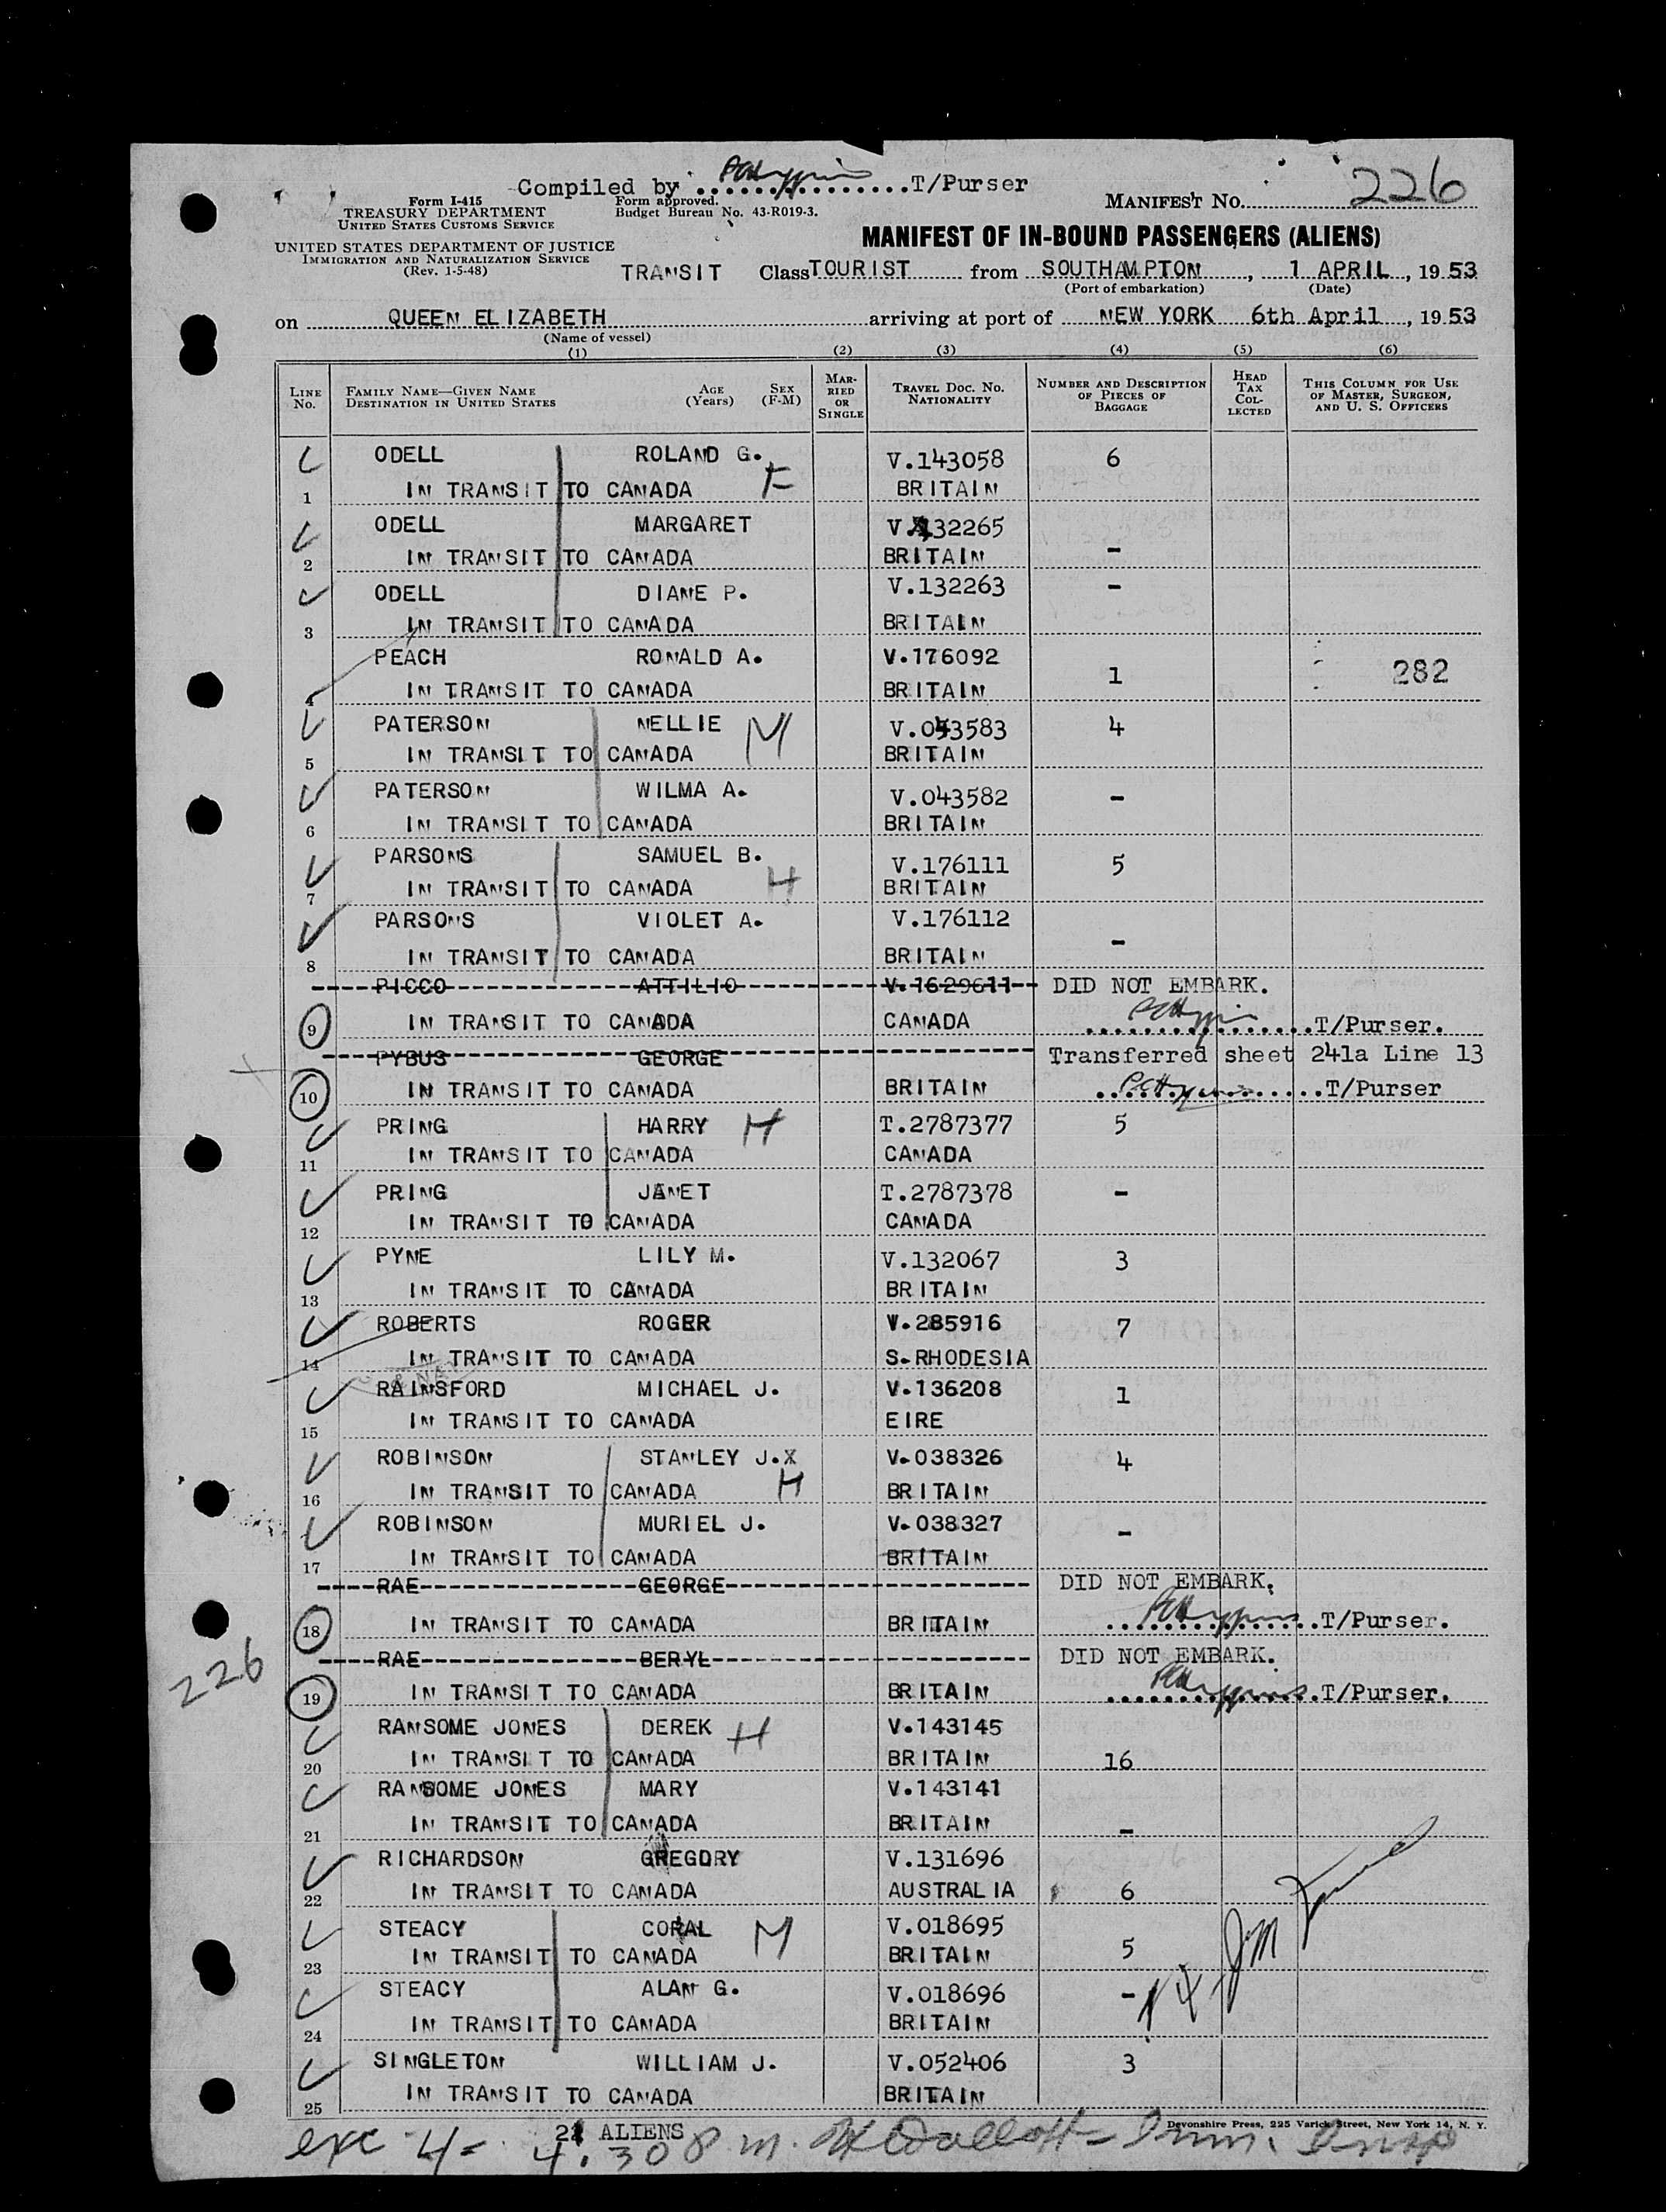 Compiled by ...............T/Purser
Form I-415
TREASURY DEPARTMENT
UNITED STATES CUSTOMS SERVICE
Form approved.
Budget Bureau No. 43-R019-3.
MANIFEST No. 226
UNITED STATES DEPARTMENT OF JUSTICE
IMMIGRATION AND NATURALIZATION SERVICE
(Rev. 1-5-48)
MANIFEST OF IN-BOUND PASSENGERS (ALIENS)
TRANSIT Class TOURIST from SOUTHAMPTON, 1 APRIL, 19 53
(Port of embarkation) (Date)
on QUEEN ELIZABETH arriving at port of NEW YORK 6th April, 19 53
(Name of vessel)
(1) (2) (3) (4) (5) (6)
LINE No. FAMILY NAME—GIVEN NAME DESTINATION IN UNITED STATES AGE (Years) SEX (F-M) MARRIED OR SINGLE TRAVEL DOC. No. NATIONALITY NUMBER AND DESCRIPTION OF PIECES OF BAGGAGE HEAD TAX COLLECTED THIS COLUMN FOR USE OF MASTER, SURGEON, AND U. S. OFFICERS
ODELL ROLAND G. V.143058 6
1 IN TRANSIT TO CANADA F BRITAIN
ODELL MARGARET V.132265
2 IN TRANSIT TO CANADA BRITAIN -
ODELL DIANE P. V.132263 -
3 IN TRANSIT TO CANADA BRITAIN
PEACH RONALD A. V.176092
4 IN TRANSIT TO CANADA BRITAIN 1 282
PATERSON NELLIE M V.043583 4
5 IN TRANSIT TO CANADA BRITAIN
PATERSON WILMA A. V.043582 -
6 IN TRANSIT TO CANADA BRITAIN
PARSONS SAMUEL B. V.176111 5
7 IN TRANSIT TO CANADA H BRITAIN
PARSONS VIOLET A. V.176112
8 IN TRANSIT TO CANADA BRITAIN -
PICCO ATTILIO V.1629611 DID NOT EMBARK.
9 IN TRANSIT TO CANADA CANADA ...............T/Purser.
PYBUS GEORGE Transferred sheet 241a Line 13
10 IN TRANSIT TO CANADA BRITAIN ...............T/Purser
PRING HARRY H T.2787377 5
11 IN TRANSIT TO CANADA CANADA
PRING JANET T.2787378 -
12 IN TRANSIT TO CANADA CANADA
PYNE LILY M. V.132067 3
13 IN TRANSIT TO CANADA BRITAIN
ROBERTS ROGER V.285916 7
14 IN TRANSIT TO CANADA S.RHODESIA
RAINSFORD MICHAEL J. V.136208 1
15 IN TRANSIT TO CANADA EIRE
ROBINSON STANLEY J.X V.038326 4
16 IN TRANSIT TO CANADA H BRITAIN
ROBINSON MURIEL J. V.038327 -
17 IN TRANSIT TO CANADA BRITAIN
RAE GEORGE DID NOT EMBARK.
18 IN TRANSIT TO CANADA BRITAIN ...............T/Purser.
RAE BERYL DID NOT EMBARK.
19 IN TRANSIT TO CANADA BRITAIN ...............T/Purser.
226
RANSOME JONES DEREK H V.143145
20 IN TRANSIT TO CANADA BRITAIN 16
RANSOME JONES MARY V.143141
21 IN TRANSIT TO CANADA BRITAIN -
RICHARDSON GREGORY V.131696
22 IN TRANSIT TO CANADA AUSTRALIA 6
STEACY CORAL M V.018695
23 IN TRANSIT TO CANADA BRITAIN 5
STEACY ALAN G. V.018696 -
24 IN TRANSIT TO CANADA BRITAIN
SINGLETON WILLIAM J. V.052406 3
25 IN TRANSIT TO CANADA BRITAIN
21 ALIENS
Devonshire Press, 225 Varick Street, New York 14, N. Y.
exc 4= 4.30 P.m. Imm. Insp